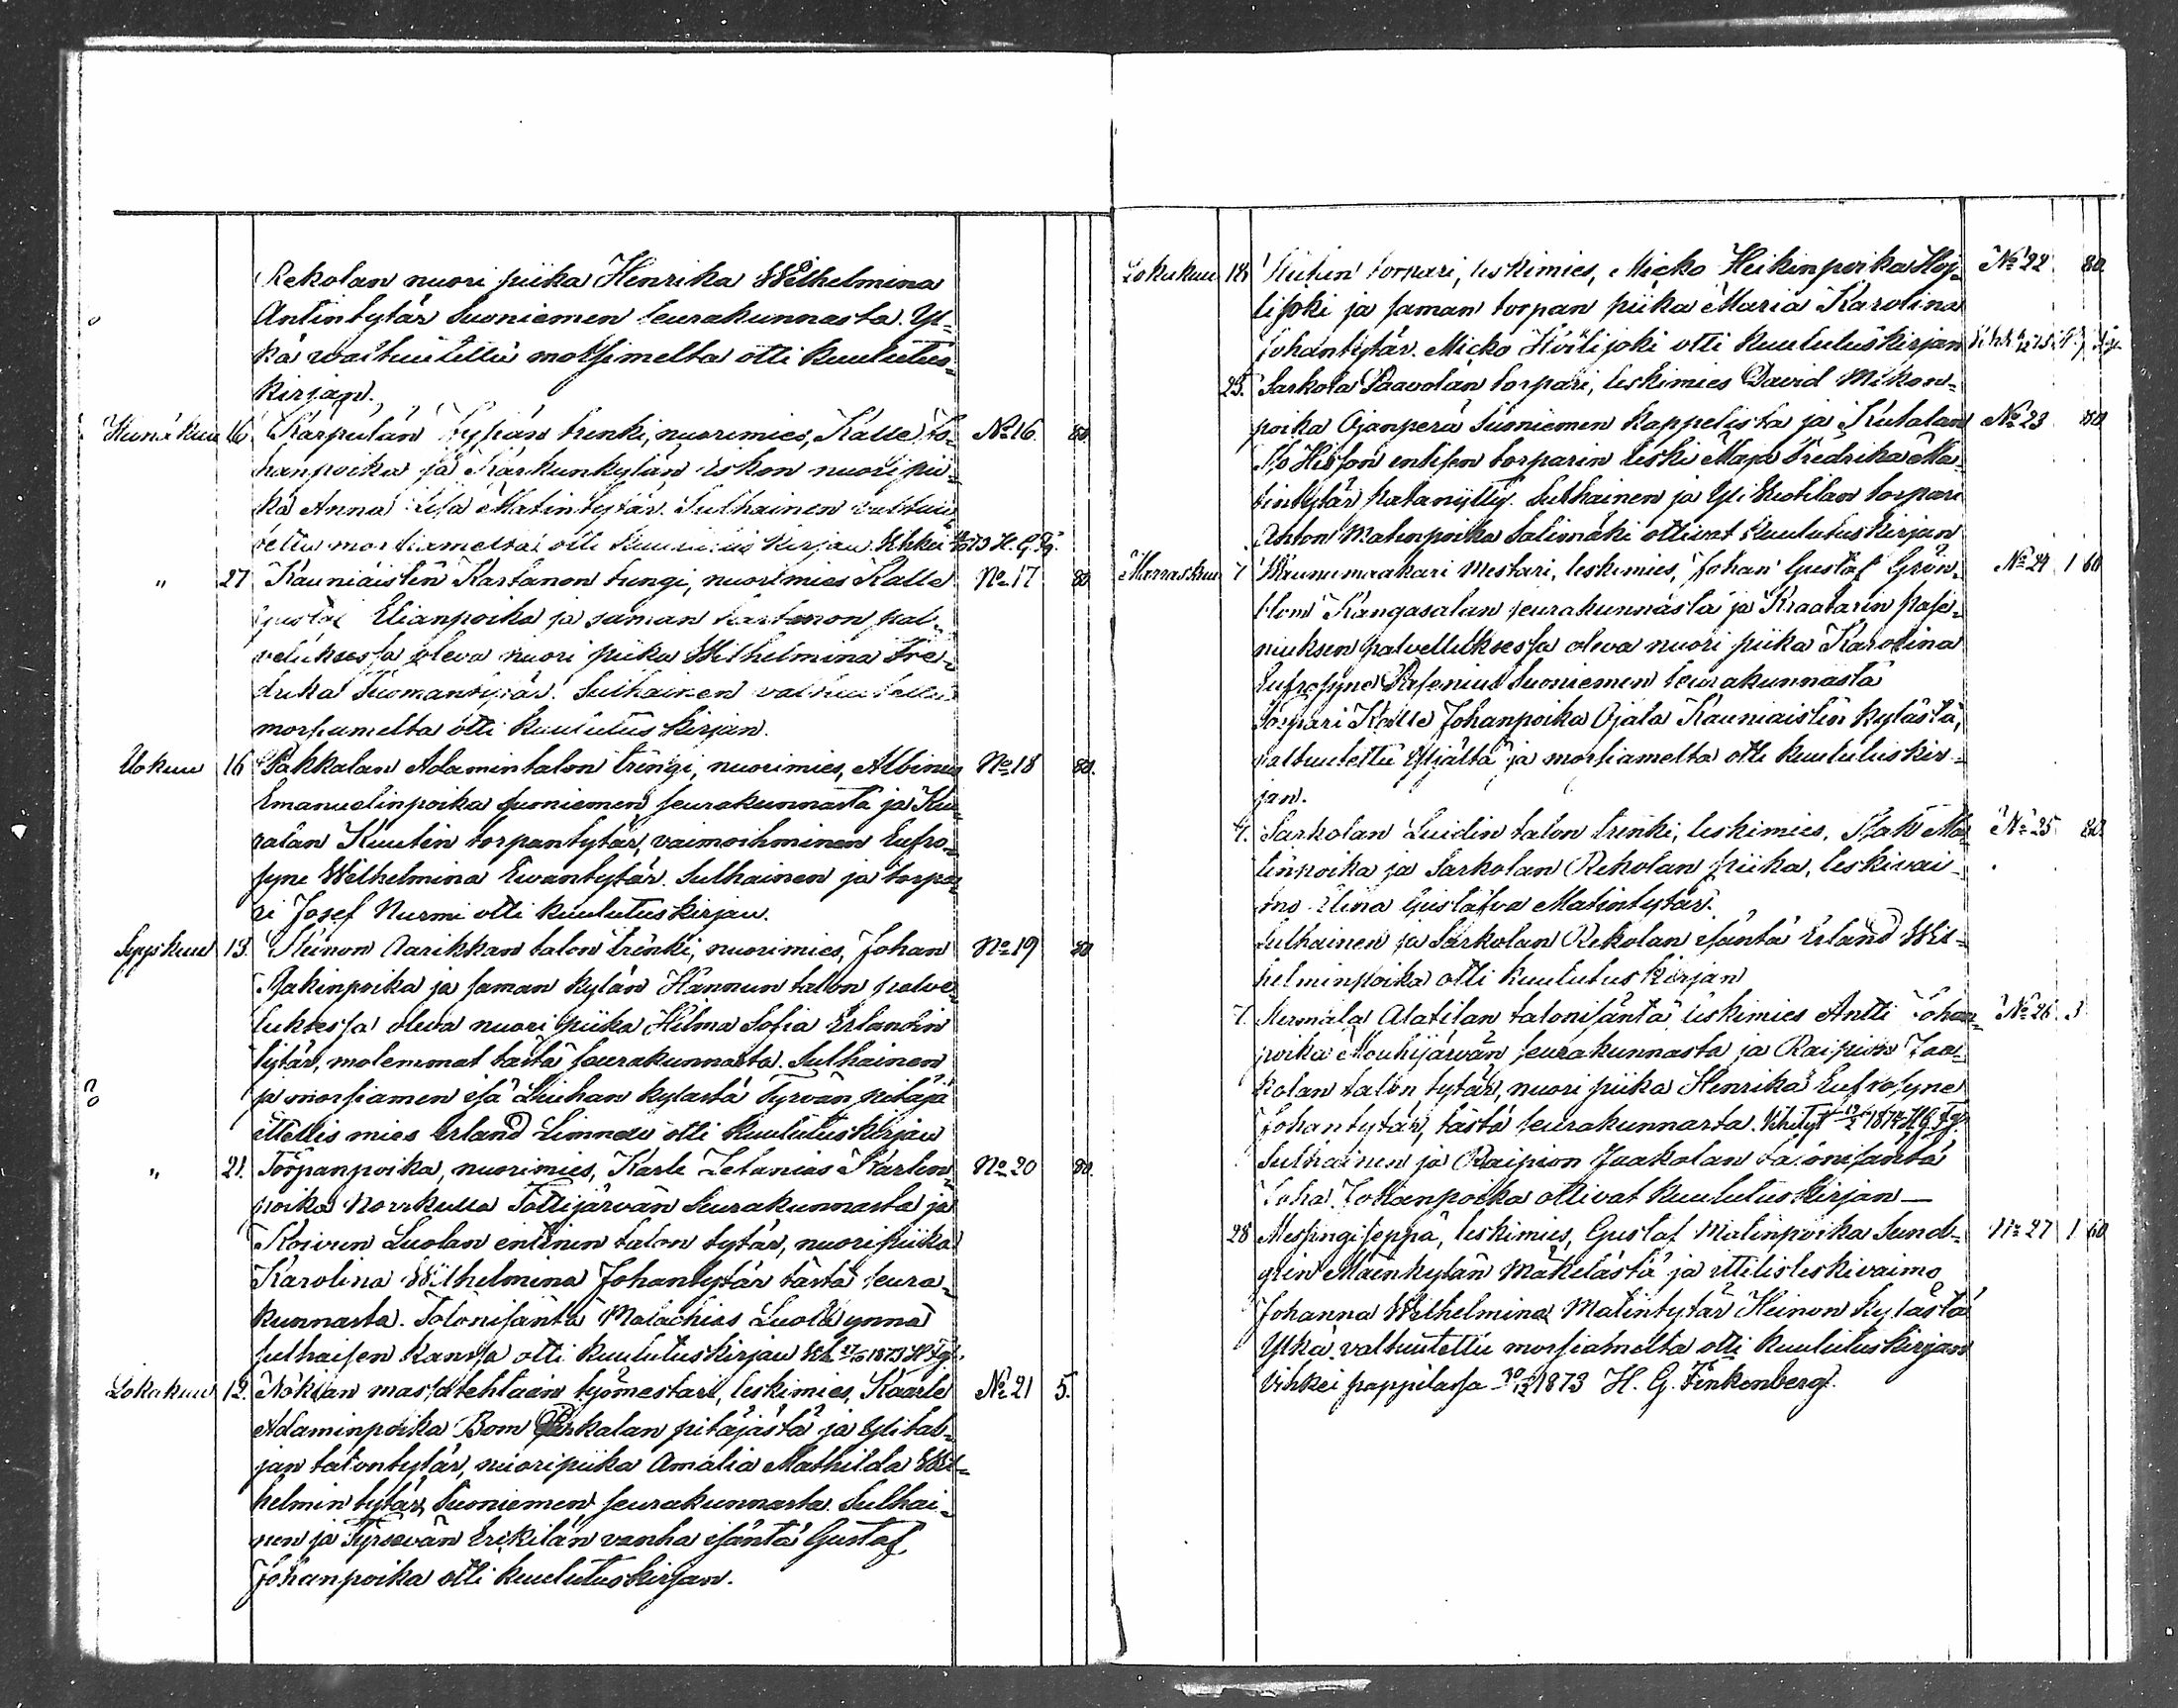 Rekolan nuori piika Henrika Wilhelmina
Antintytär Suoniemen seurakunnasta. Yl-
kä waltuutettu morsimelta otti kuulutus-
kirjan.
Heinäkuu 16 Kärpulän trenki, nuorimies, Kalle Jo- No 16. 80.
hanpoika ja Karkunkylän Eskon nuori pii-
ka Anna Lisa Matintytär. Sulhainen valtuu-
tettu morsiamelta otti kuulutus kirjan. Vihki H. G. Fg.
" 27 Kauniaisten Kartanon trengi, nuorimies Kalle No 17 80
Gustaf Elianpoika ja saman kartanon pal-
veluksessa oleva nuori piika Wilhelmina Fre-
drika Tuomantytär. Sulhainen valtuutettu
morsiamelta otti kuulutus kirjan.
Elokuu 16 Pakkalan Adamintalon trengi, nuorimies, Albinus No 18 80.
Emanuelinpoika Suoniemen seurakunnasta ja Kau-
ralan Kuutin torpantytär, vaimoihminen Eufro-
syne Wilhelmina Ewantytär. Sulhainen ja torpa-
ri Josef Nurmi otti kuulutuskirjan.
Syyskuu 13. Heinon Aarikkan talon trenki, nuorimies, Johan No 19 80
Isakinpoika ja saman kylän Hannun talon palve-
luksessa oleva nuori piika Hilma Sofia Erlandin
tytär, molemmat tästä seurakunnasta. Sulhainen
ja morsiamen isä Liuhan kylästä Tyrvän pitäjä
ittellis mies Erland Linnew otti kuulutuskirjan
" 21. Torpanpoika, nuorimies, Karle Zetanias Karlen- No 20 80.
poika Norrkulla Tottijärvän Seurakunnasta ja
Koivun Luolan entinen talon tytär, nuori piika
Karolina Wilhelmina Johantytär tästä seura-
kunnasta. Talonisäntä Malachias Luola ynnä
sulhaisen kanssa otti kuulutuskirjan Vih 1873 H Fg.
Lokakuu 12. Nokian massatehtaan työmestari, leskimies, Kaarle No 21 5.
Adaminpoika Bom Pirkalan pitäjästä ja Ylital-
jan talontytär, nuoripiika Amalia Mathilda Wil-
helmin tytär, Suoniemen seurakunnasta. Sulhai-
nen ja Tyrsevän Erckilän vanha isäntä Gustaf
Johanpoika otti kuulutuskirjan.
Lokakuu 18 torpari, leskimies, Micko Heikinpoika Höy- No 22 80.
lijoki ja saman torpan piika Maria Karolina
Johantytär. Micko otti kuulutuskirjan
25. Sarkola Paavolan torpari, leskimies David Mikon-
poika Ojanperä Suoniemen kappelista ja Kutalan No 23 80
Iso Hiisson entisen torparin leski Maja Fredrika Ma-
tintytär. Sulhainen ja Yli torpari
Anton Matinpoika Salismäki ottivat Kuulutuskirjan
Marraskuu 7 Waunumaakari Mestari, leskimies, Johan Gustaf Grön- No 24 1 60
blom Kangasalan seurakunnasta ja Kraatarin Rase-
niuksen palvelluksessa oleva nuori piika Karolina
Eufrosyne Rasenius Suoniemen seurakunnasta
Torpari Kalle Johanpoika Ojala Kauniaisten kylästä,
valtuutettu yljältä ja morsiamelta otti kuulutuskir-
jan.
7. Sarkolan Luidin talon trenki, leskimies, Isak Ma- No 25 80
tinpoika ja Sarkolan Rekolan piika, leskivai-
mo Elina Gustafva Matintytär.
Sulhainen ja Sarkolan Rekolan isäntä Erland Wil-
helminpoika otti kuulutus kirjan
7. Mermala Alatilan talonisäntä leskimies Antti Johan- No 26 3
poika Mouhijärvän seurakunnasta ja Raipion Jaa-
kolan talon tytär, nuori piika Henrika Eufrosyne
Johantytär, tästä seurakunnasta. Vihityt 1874 H.G.Fg.
Sulhainen ja Raipion Jaakolan talonisäntä
Juha Johanpoika ottivat kuulutus kirjan—
28 Messingiseppä, leskimies, Gustaf Matinpoika Sund- No 27 1 60
gren Mäenkylän Mäkelästä ja ittelisleskivaimo
Johanna Wilhelmina Matintytär Heinon kylästä
Ylkä valtuutettu morsiamelta otti kuulutuskirjan
Vihkei pappilassa 30/12 1873 H. G. Finkenberg.